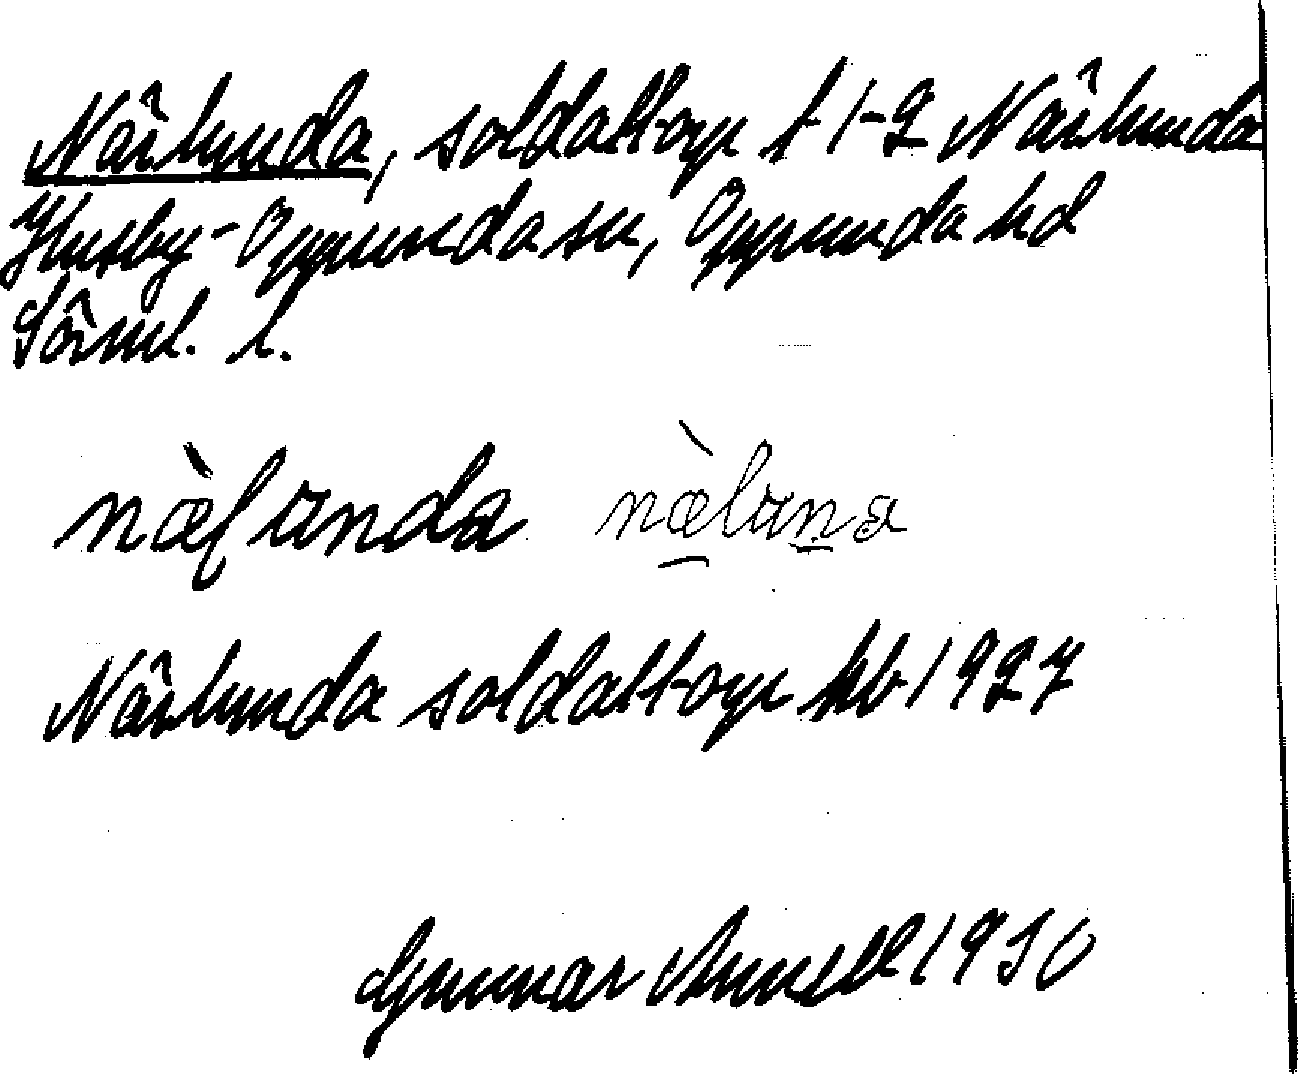 Närlunda, soldattorp t 1-2 Närlunda
Husby-Oppunda sn, Oppunda hd
Sörml. l.
nœ̀lunda nœ̀luna
Närlunda soldattorp kb 1927
Gunnar Annell 1930